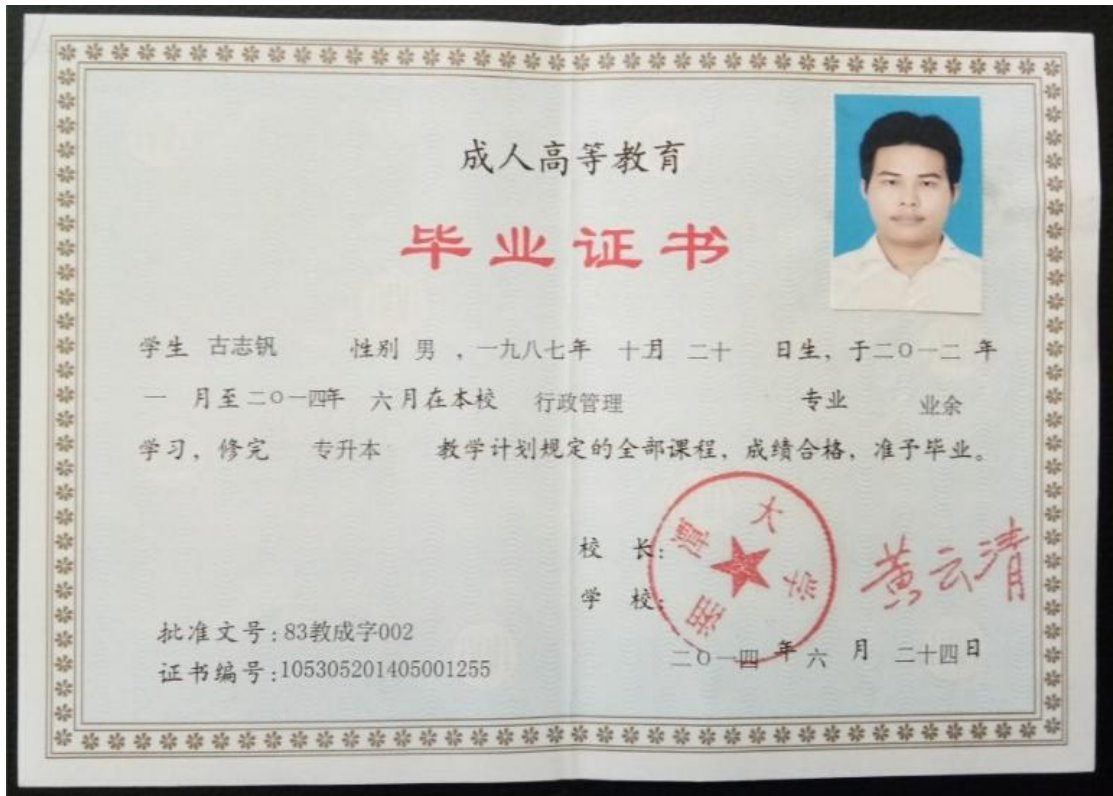 成人高等教育
毕业证书
学生 古志钒 性别 男 ，一九八七年 十月 二十 日生，于二〇一二 年
一 月至二〇一四年 六月在本校 行政管理 专业 业余
学习，修完 专升本 教学计划规定的全部课程，成绩合格，准予毕业。
校 长：
黄云清
学 校：
湘潭大学
批准文号：83教成字002
二〇一四 年 六 月 二十四日
证书编号：105305201405001255